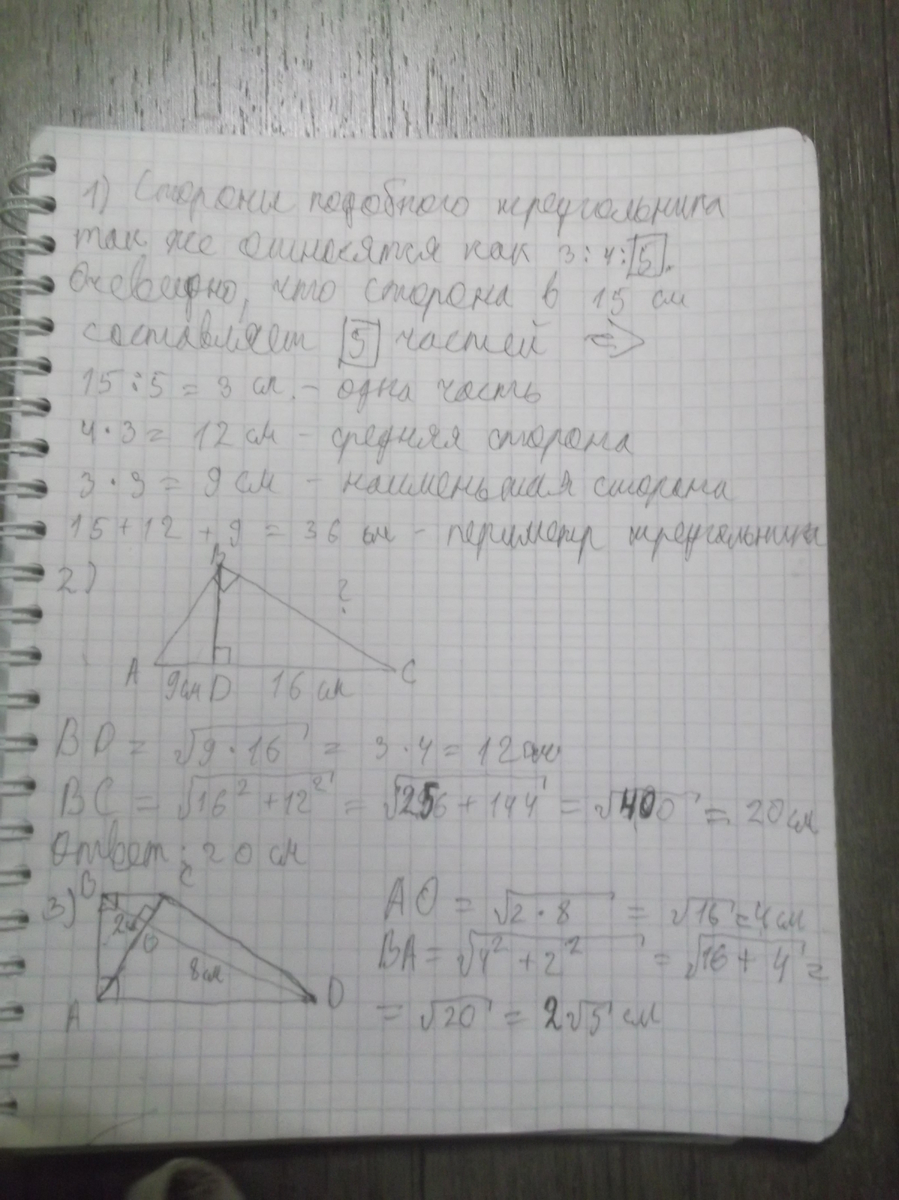 1) Стороны подобного треугольника
так же относятся как 3:4:5.
Очевидно, что сторона в 15 см
составляет 5 частей =>
15:5 = 3 см. - одна часть
4·3 = 12 см - средняя сторона
3·3 = 9 см - наименьшая сторона
15 + 12 + 9 = 36 см - периметр треугольника
2)
B
?
A
9см D 16 см
C
BD = √9·16 = 3·4 = 12см
BC = √16² + 12² = √256 + 144 = √400 = 20 см
Ответ: 20 см
3)
B C
2см
O
8см
A
D
AO = √2·8 = √16 = 4 см
BA = √4² + 2² = √16 + 4 =
= √20 = 2√5 см